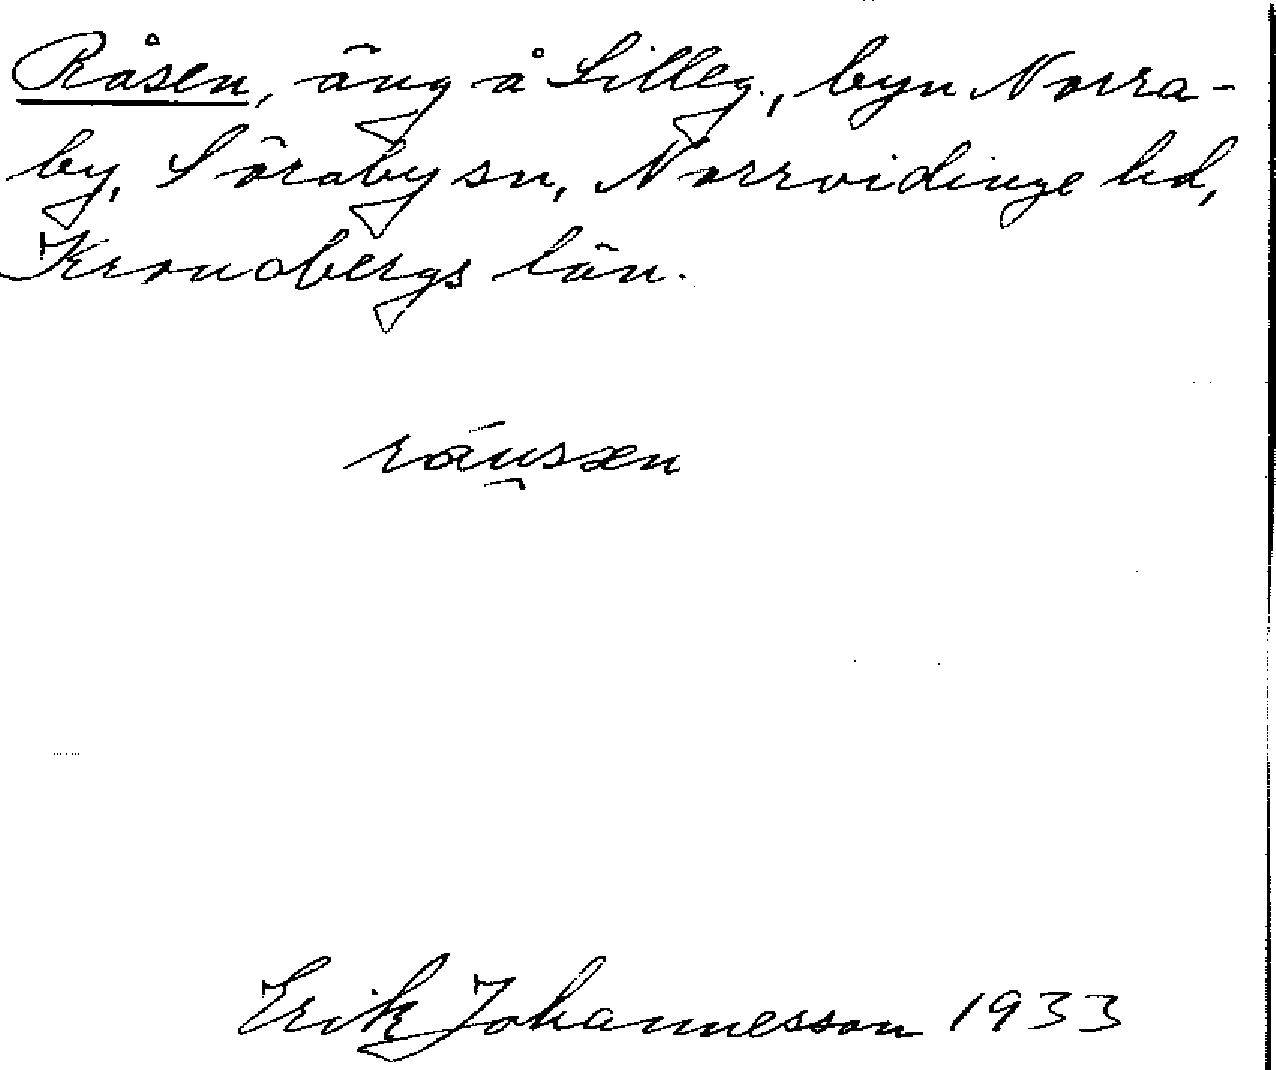 Råsen, äng å Lilleg., byn Norra-
by, Söraby sn, Norrvidinge hd,
Kronobergs län.
ráu̯sæn
Erik Johannesson 1933